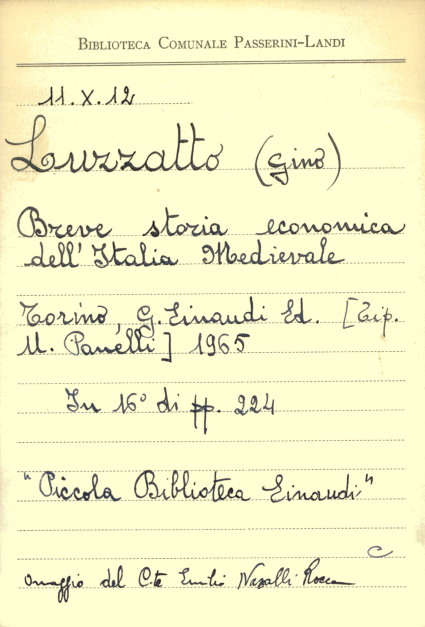 BIBLIOTECA COMUNALE PASSERINI-LANDI
11.X.12
Luzzatto (Gino)
Breve storia economica
dell'Italia Medievale
Torino, G. Einaudi Ed. [Tip.
U. Panelli] 1965
In 16° di pp. 224
"Piccola Biblioteca Einaudi"
C
Omaggio del C.te Emilio Nasalli Rocca